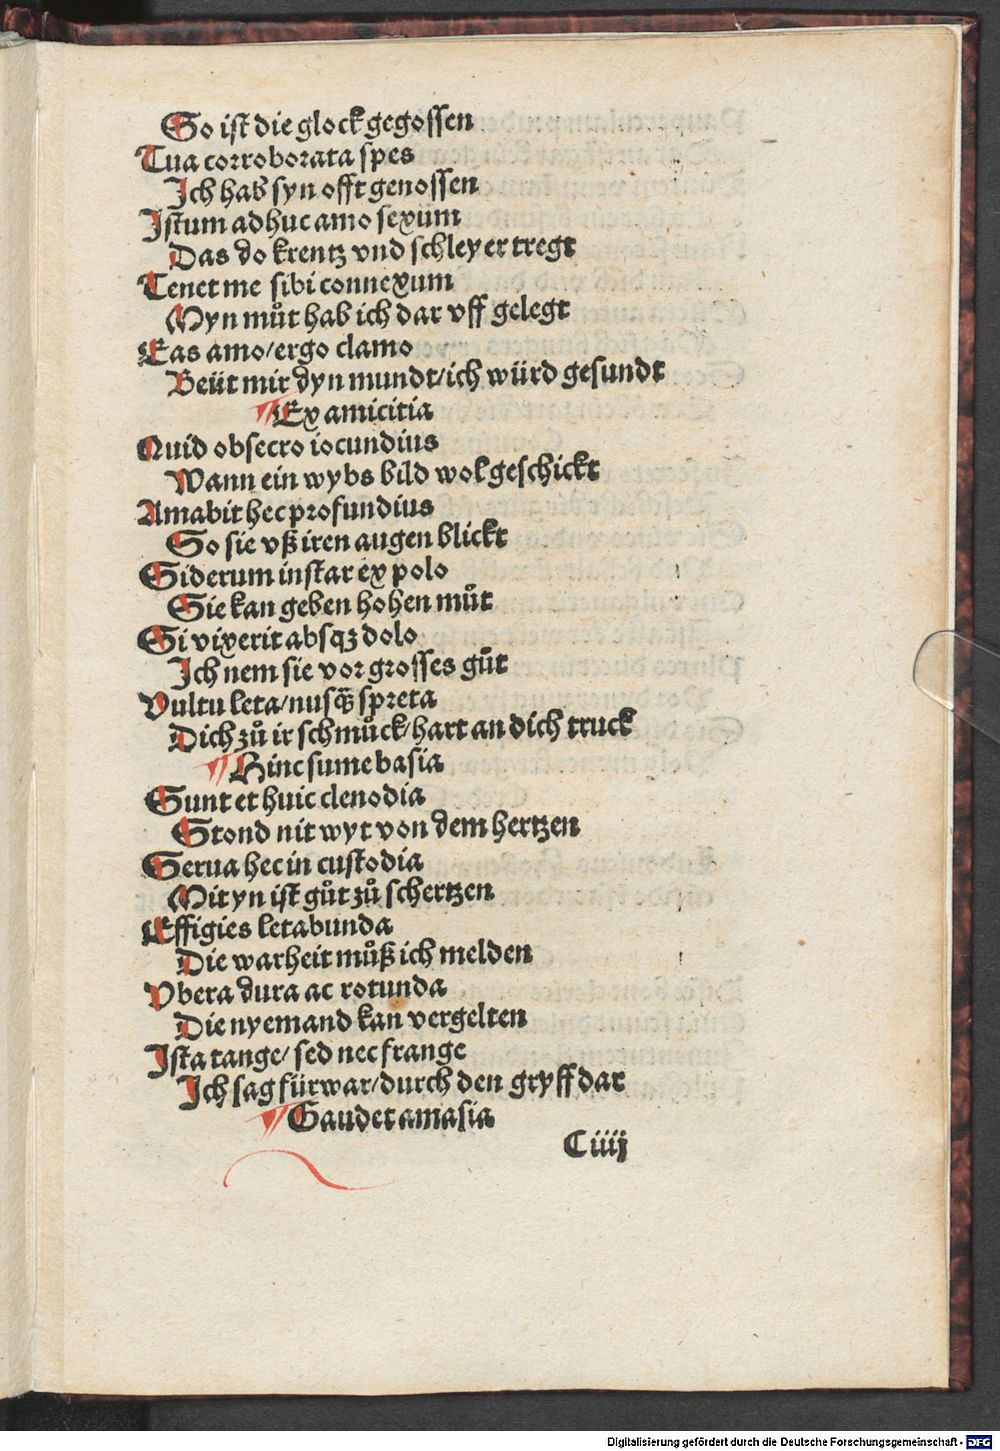 So ist die glock gegossen
Tua corroborata spes
Ich hab syn offt genossen
Istum adhuc amo sexum
Das do krentz vnd schleyer tregt
Tenet me sibi connexum
Myn můt hab ich dar vff gelegt
Eas amo/ergo clamo
Beüt mir dyn mundt/ich würd gesundt
Ex amicitia
Quid obsecro iocundius
Wann ein wybs bild wol geschickt
Amabit hec profundius
So sie vß iren augen blickt
Siderum instar ex polo
Sie kan geben hohen můt
Si vixerit absqꝫ dolo
Ich nem sie vor grosses gůt
Vultu leta/nusq̃ spreta
Dich zů ir schmůck/hart an dich truck
Hinc sume basia
Sunt et huic clenodia
Stond nit wyt von dem hertzen
Serua hec in custodia
Mit yn ist gůt zů schertzen
Effigies letabunda
Die warheit můß ich melden
Vbera dura ac rotunda
Die nyemand kan vergelten
Ista tange/ sed nec frange
Ich sag fürwar/durch den gryff dar
Gaudet amasia
C iiij
Digitalisierung gefördert durch die Deutsche Forschungsgemeinschaft - DFG